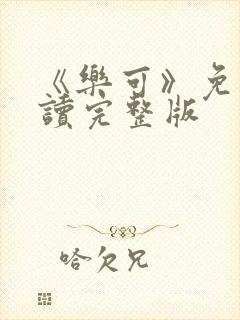 《樂可》免
讀完整版
哈欠兄